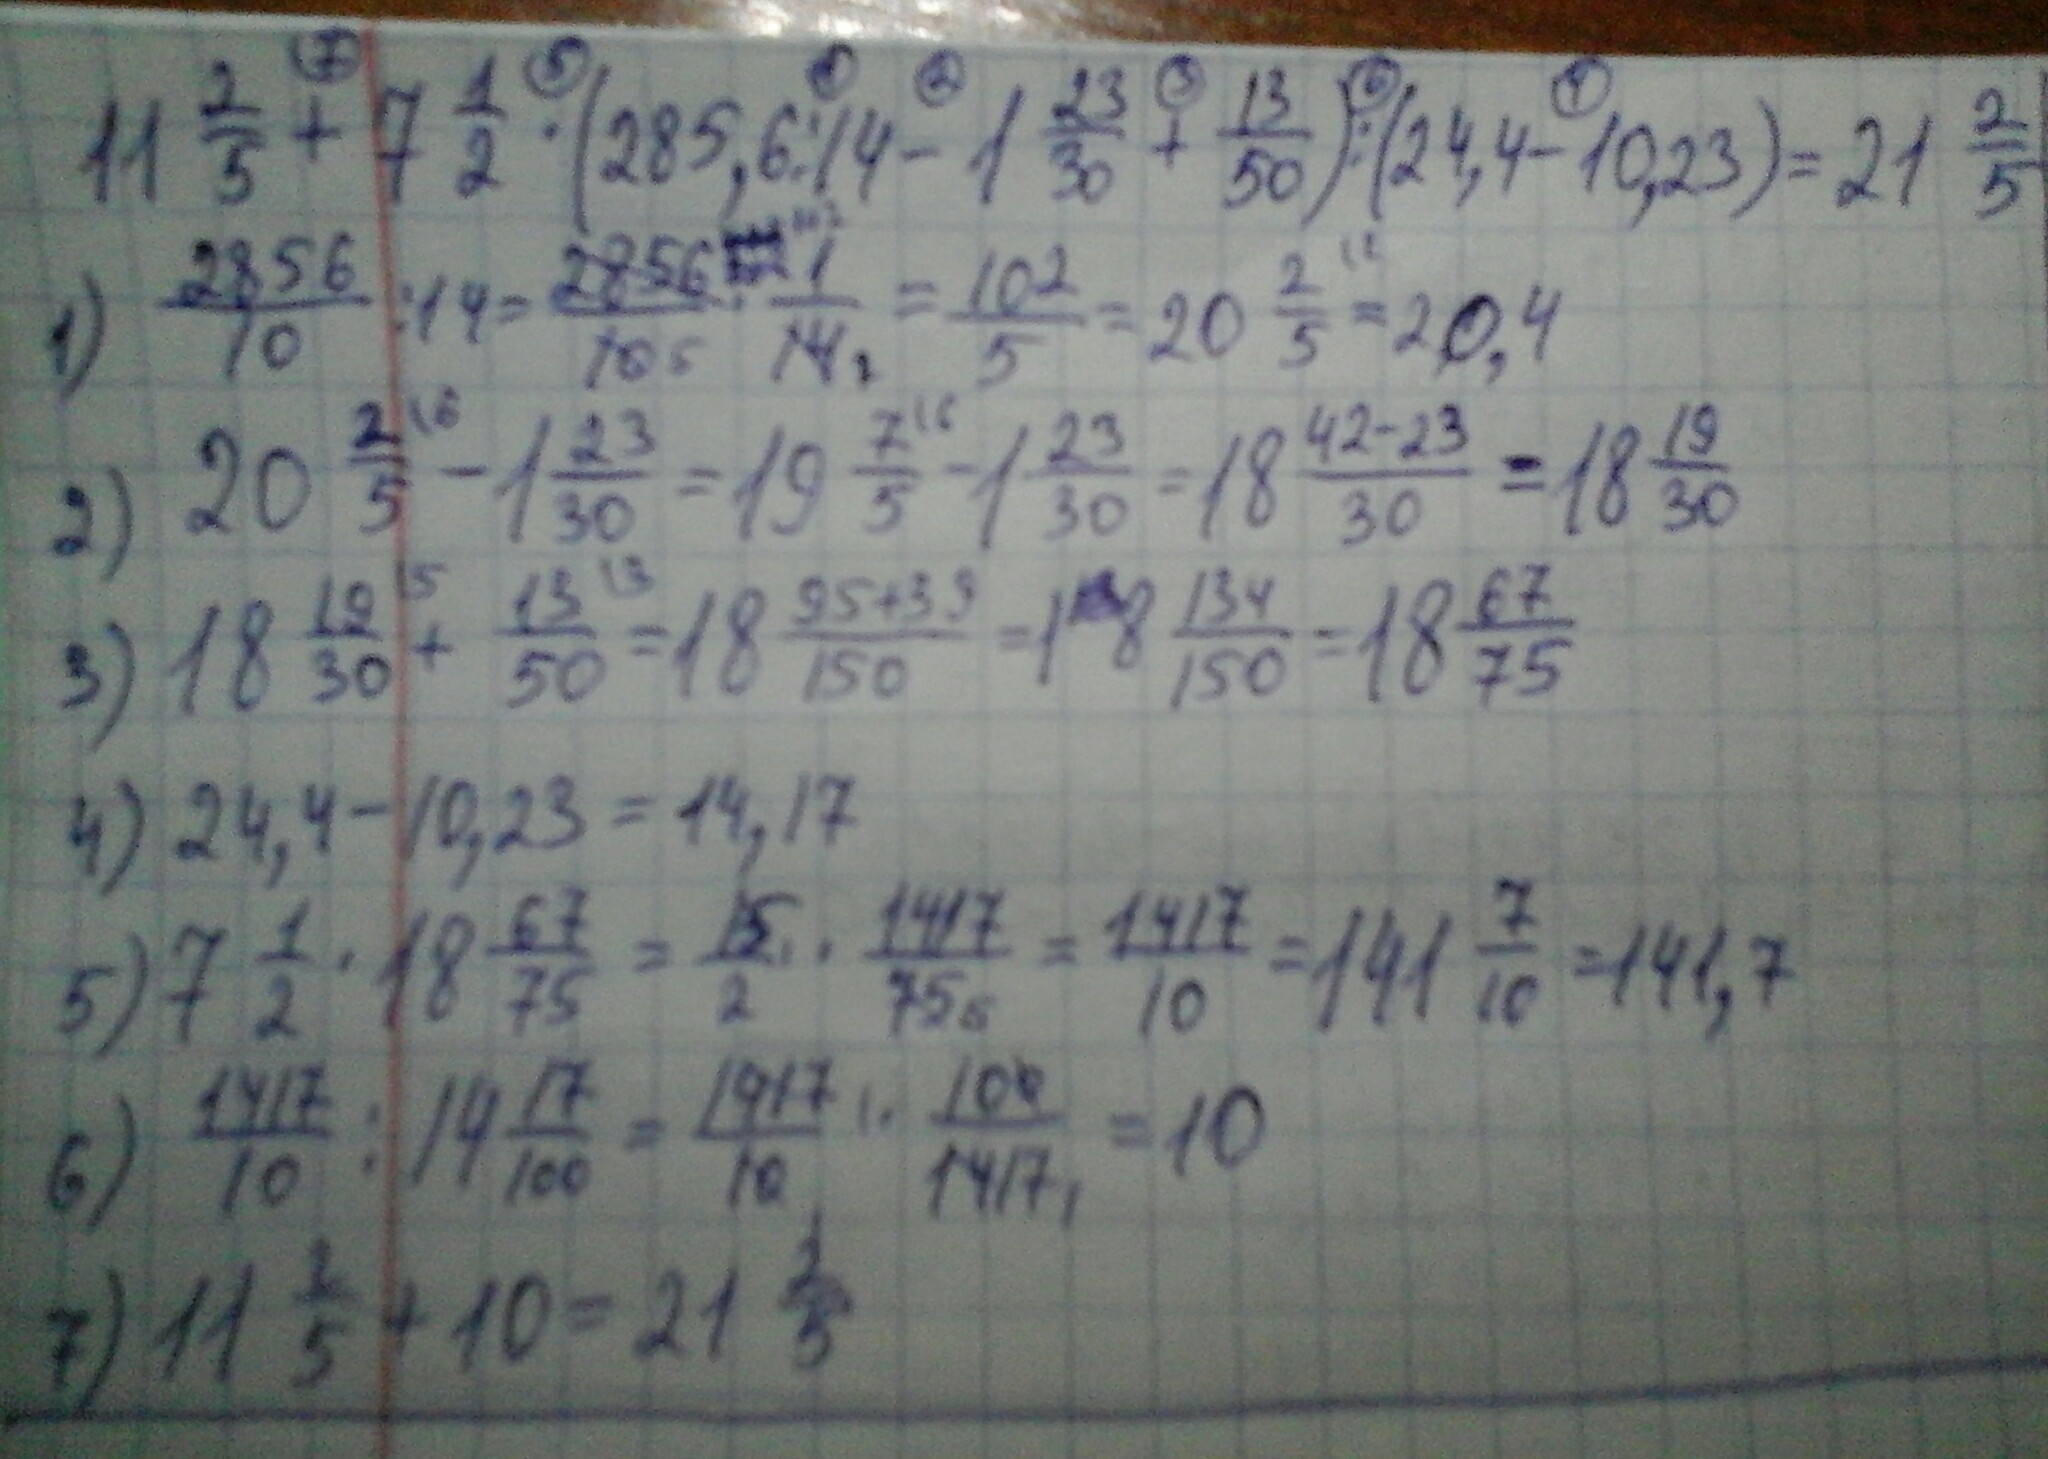 11 2/5 + 7 1/2 · (285,6:14 - 1 23/30 + 13/50) : (24,4 - 10,23) = 21 2/5
1) 2856/10 : 14 = 2856/10 · 1/14 = 102/5 = 20 2/5 = 20,4
2) 20 2/5 - 1 23/30 = 19 7/5 - 1 23/30 = 18 42-23/30 = 18 19/30
3) 18 19/30 + 13/50 = 18 95+39/150 = 18 134/150 = 18 67/75
4) 24,4 - 10,23 = 14,17
5) 7 1/2 · 18 67/75 = 15/2 · 1417/75 = 1417/10 = 141 7/10 = 141,7
6) 1417/10 : 14 17/100 = 1417/10 · 100/1417 = 10
7) 11 2/5 + 10 = 21 2/5